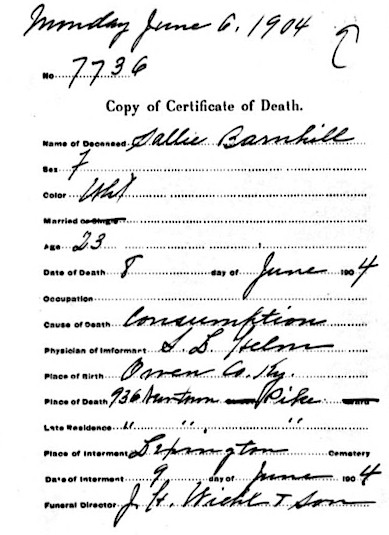 Monday June 6, 1904
No. 7736
Copy of Certificate of Death.
Name of Deceased Sallie Barnhill
Sex F
Color Wht
Married or Single
Age 23
Date of Death 8 day of June 1904
Occupation
Cause of Death Consumption
Physician of Imformant S. L. Helm
Place of Birth Owen Co. Ky.
Place of Death 936 Newtown Pike Ward
Late Residence " " "
Place of Interment Lexington Cemetery
Date of Interment 9 day of June 1904
Funeral Director J. H. Wiehl & Son